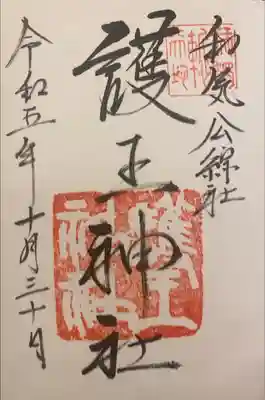 和気公
社
護王神社
令和五年十月三十日
護王
神社